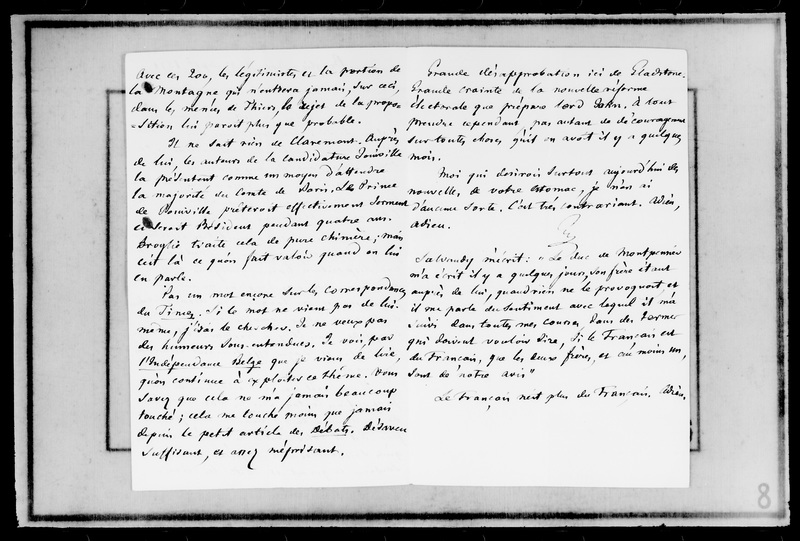 Avec ces 200, les légitimistes et la portion de
la Montagne qui n'entrera jamais, sur ceci,
dans les menées de Thiers, le rejet de la propo
=sition lui paroit plus que probable.
Il ne sait rien de Claremont. Auprès
de lui, les auteurs de la candidature Joinville
la présentent comme un moyen d'attendre
la majorité du Comte de Paris. Le Prince
de Joinville prêteroit effectivement serment
et seroit Président pendant quatre ans.
Broglie traite cela de pure chimère, mais
c'est là ce qu'on fait valoir quand on lui
en parle.
Pas un mot encore sur les correspondances
du Times. Si le mot ne vient pas de lui-
même, j'irai le chercher. Je ne veux pas
des humeurs sous-entendues. Je vois, par
l'Indépendance Belge que je viens de lire,
qu'on continue à exploiter ce thème. Vous
savez que cela ne m'a jamais beaucoup
touché ; cela me touche moins que jamais
depuis le petit article des Débats. Désaveu
suffisant, et assez méprisant.
Grande désapprobation ici de Gladstone.
Grande crainte de la nouvelle réforme
électorale que prépare lord John. A tout
prendre cependant pas autant de découragement
sur toutes choses qu'il en avoit il y a quelques
mois.
Moi qui désirois surtout aujourd'hui des
nouvelles de votre estomac, je n'en ai
d'aucune sorte. C'est très contrariant. Adieu,
adieu.
Salvandy m'écrit : "Le Duc de Montpensier
m'a écrit il y a quelques jours, son frère étant
auprès de lui, quand rien ne le provoquoit et
il me parle du sentiment avec lequel il m'a
suivi dans toutes mes courses, dans des termes
qui doivent vouloir dire, si le Français est
du Français, que les deux frères, et au moins un,
sont de notre avis"
Le Français n'est plus du Français. Adieu.
8